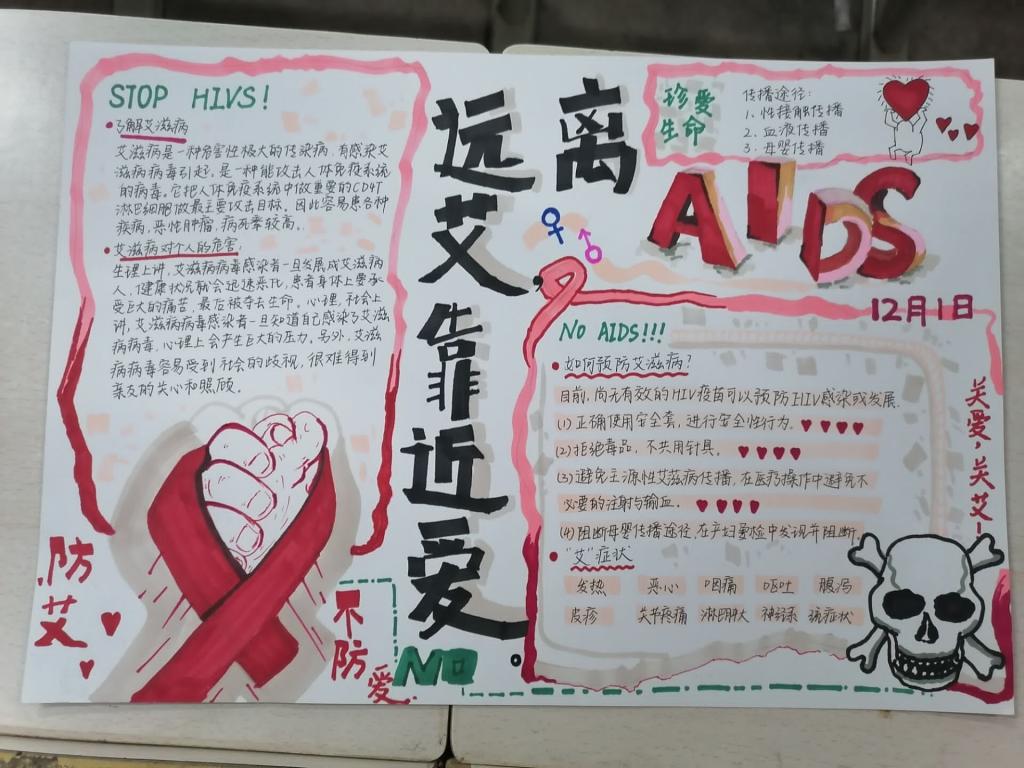 STOP HIVS!
了解艾滋病
艾滋病是一种危害性极大的传染病,有感染艾
滋病病毒引起,是一种能攻击人体免疫系统
的病毒。它把人体免疫系统中做重要的CD4T
淋巴细胞做最主要攻击目标。因此容易患各种
疾病,恶性肿瘤,病死率较高。
艾滋病对个人的危害:
生理上讲,艾滋病病毒感染者一旦发展成艾滋病
人,健康状况就会迅速恶化,患者身体上要承
受巨大的痛苦,最后被夺去生命。心理,社会上
讲,艾滋病病毒感染者一旦知道自己感染了艾滋
病病毒,心理上会产生巨大的压力。另外,艾滋
病病毒容易受到社会的歧视,很难得到
亲友的关心和照顾。
防艾
不防爱
远离
艾,
靠近爱。
NO
珍爱
生命
传播途径:
1、性接触传播
2、血液传播
3、母婴传播
AIDS
12月1日
NO AIDS!!!
如何预防艾滋病?
目前,尚无有效的HIV疫苗可以预防HIV感染或发展.
(1)正确使用安全套,进行安全性行为。
(2)拒绝毒品,不共用针具。
(3)避免主源性艾滋病传播,在医疗操作中避免不
必要的注射与输血。
(4)阻断母婴传播途径,在产妇
发现并阻断.
"艾"症状
发热 恶心 咽痛 呕吐 腹泻
皮疹 关节疼痛 淋巴肿大
关爱,关艾!